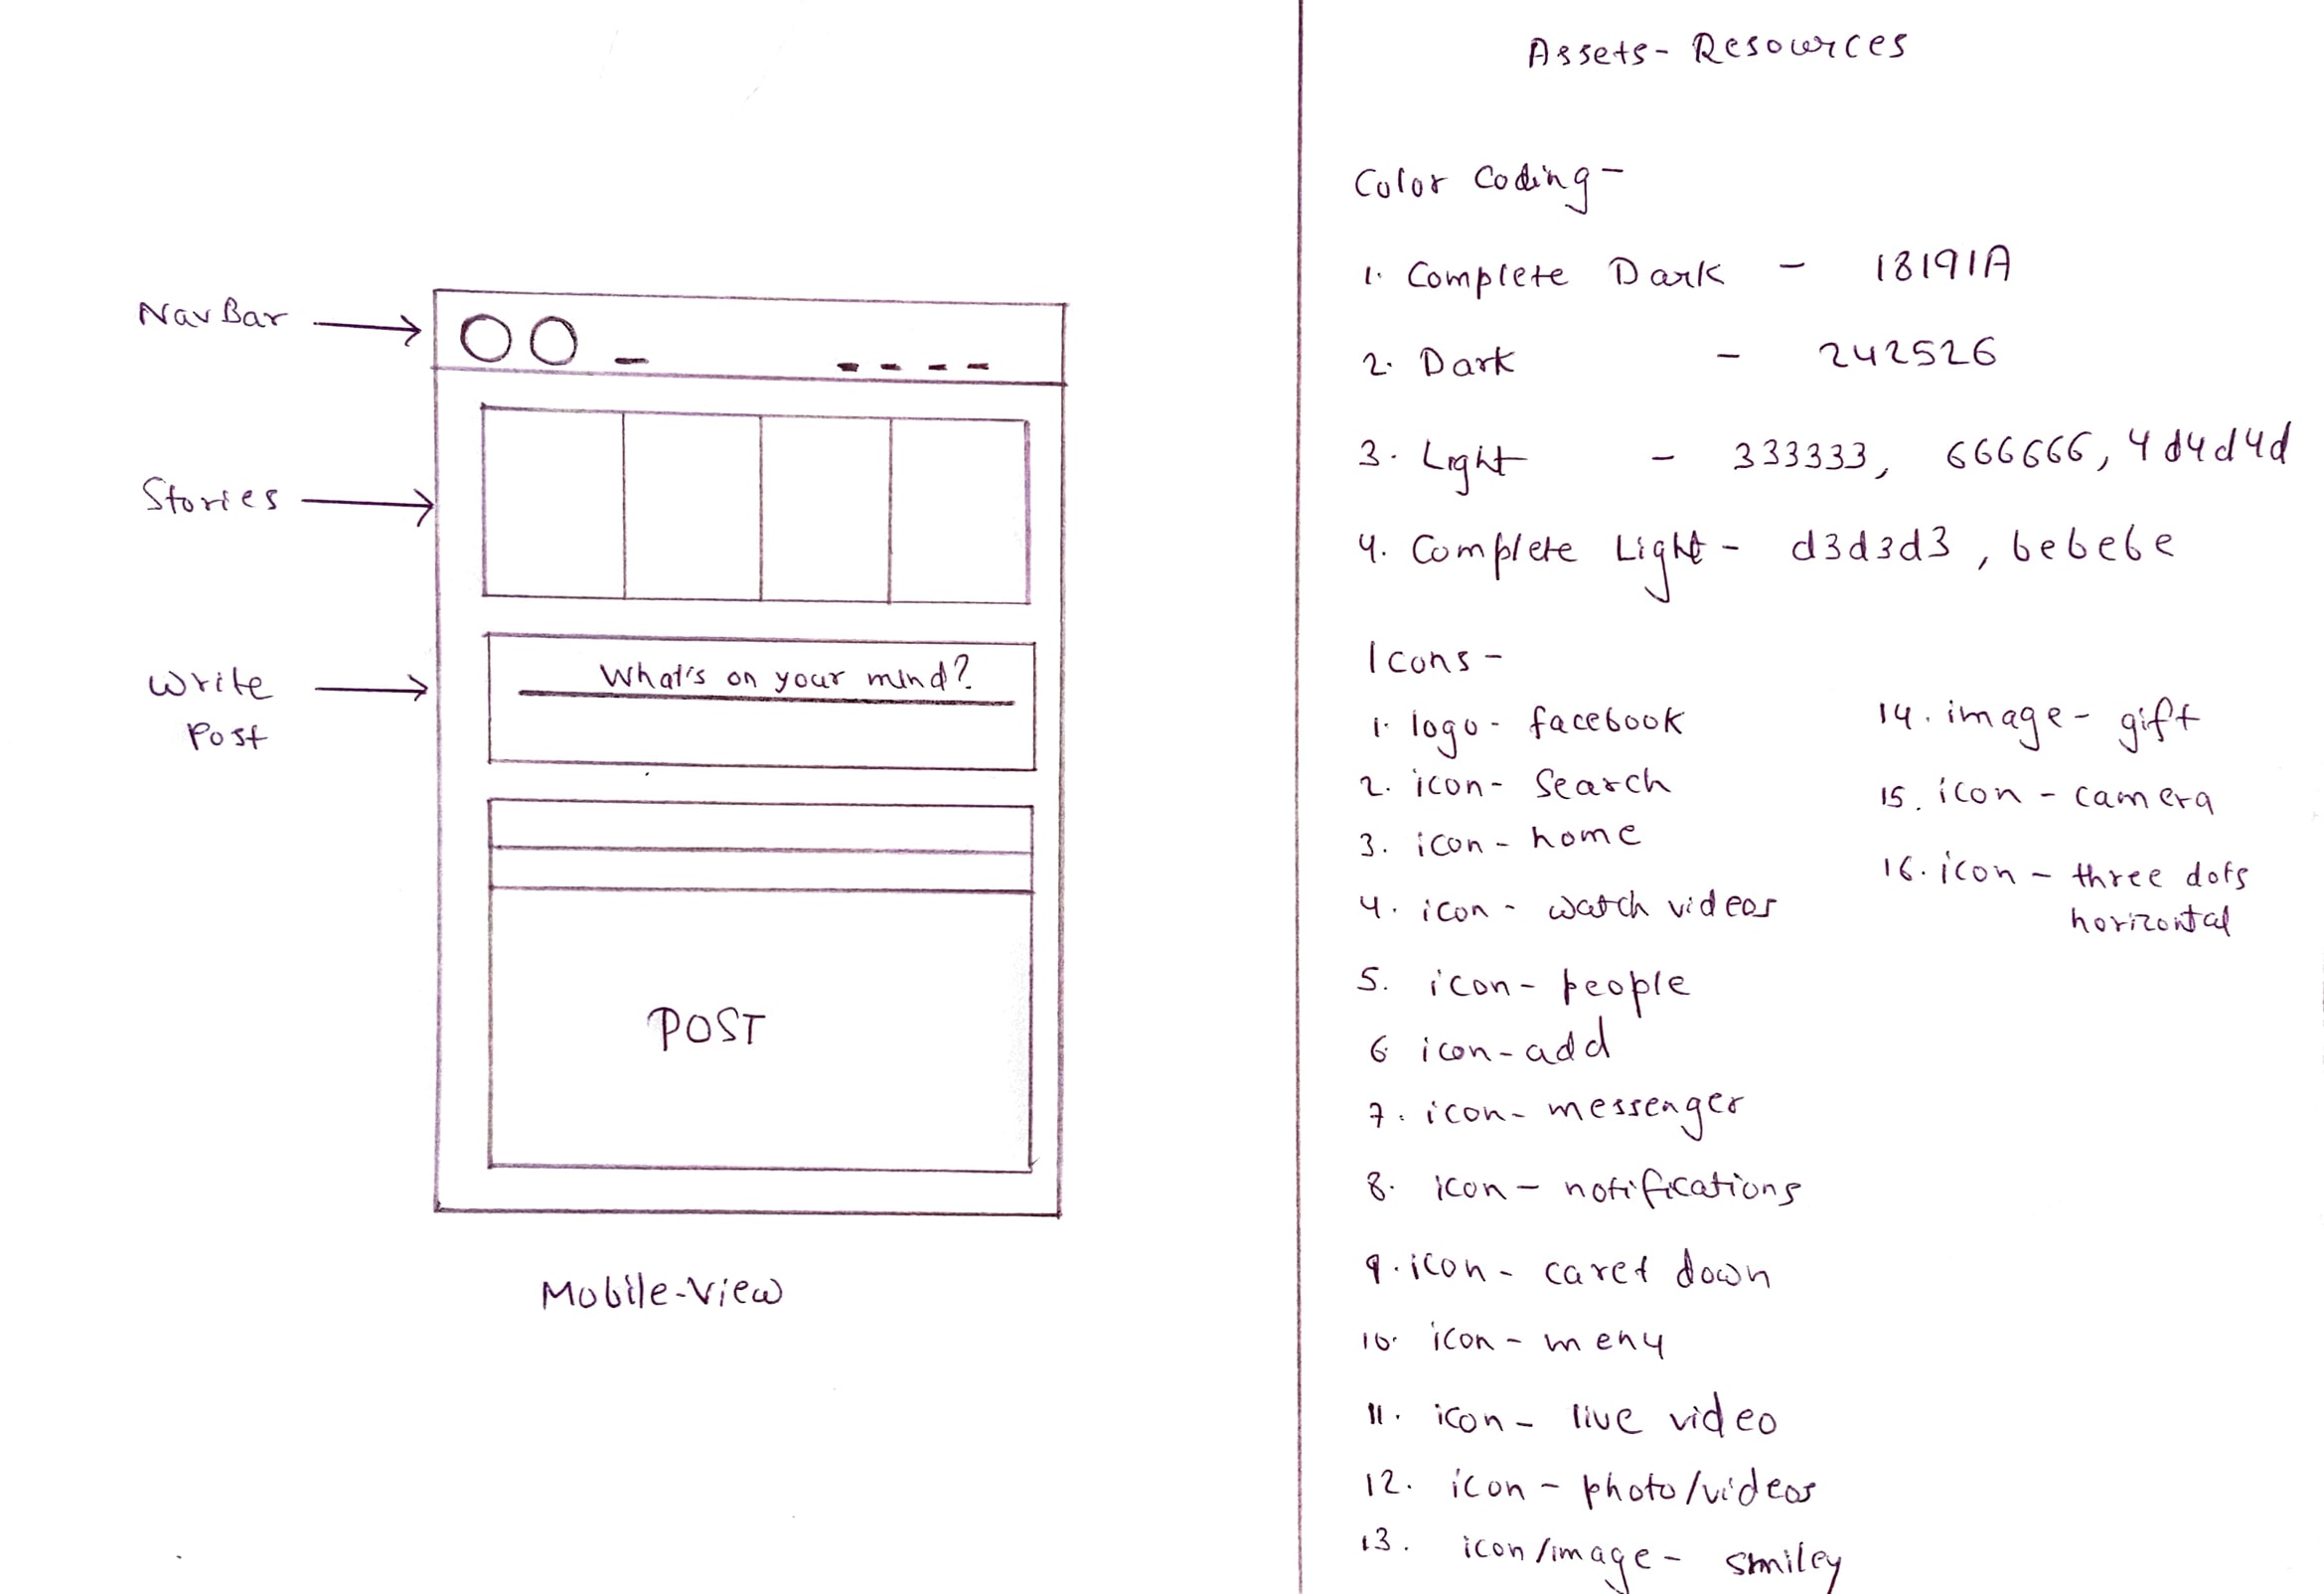 NavBar
Stories
Write
Post
What's on your mind?
POST
Mobile-View
Assets- Resources
Color Coding-
1. Complete Dark - 18191A
2. Dark - 242526
3. Light - 333333, 666666, 4d4d4d
4. Complete Light - d3d3d3, bebebe
Icons-
1. logo - facebook
2. icon - Search
3. icon - home
4. icon - watch videos
5. icon - people
6 icon - add
7. icon - messenger
8. icon - notifications
9. icon - caret down
10. icon - menu
11. icon - live video
12. icon - photo/videos
13. icon/image - smiley
14. image - gift
15. icon - camera
16. icon - three dots
horizontal